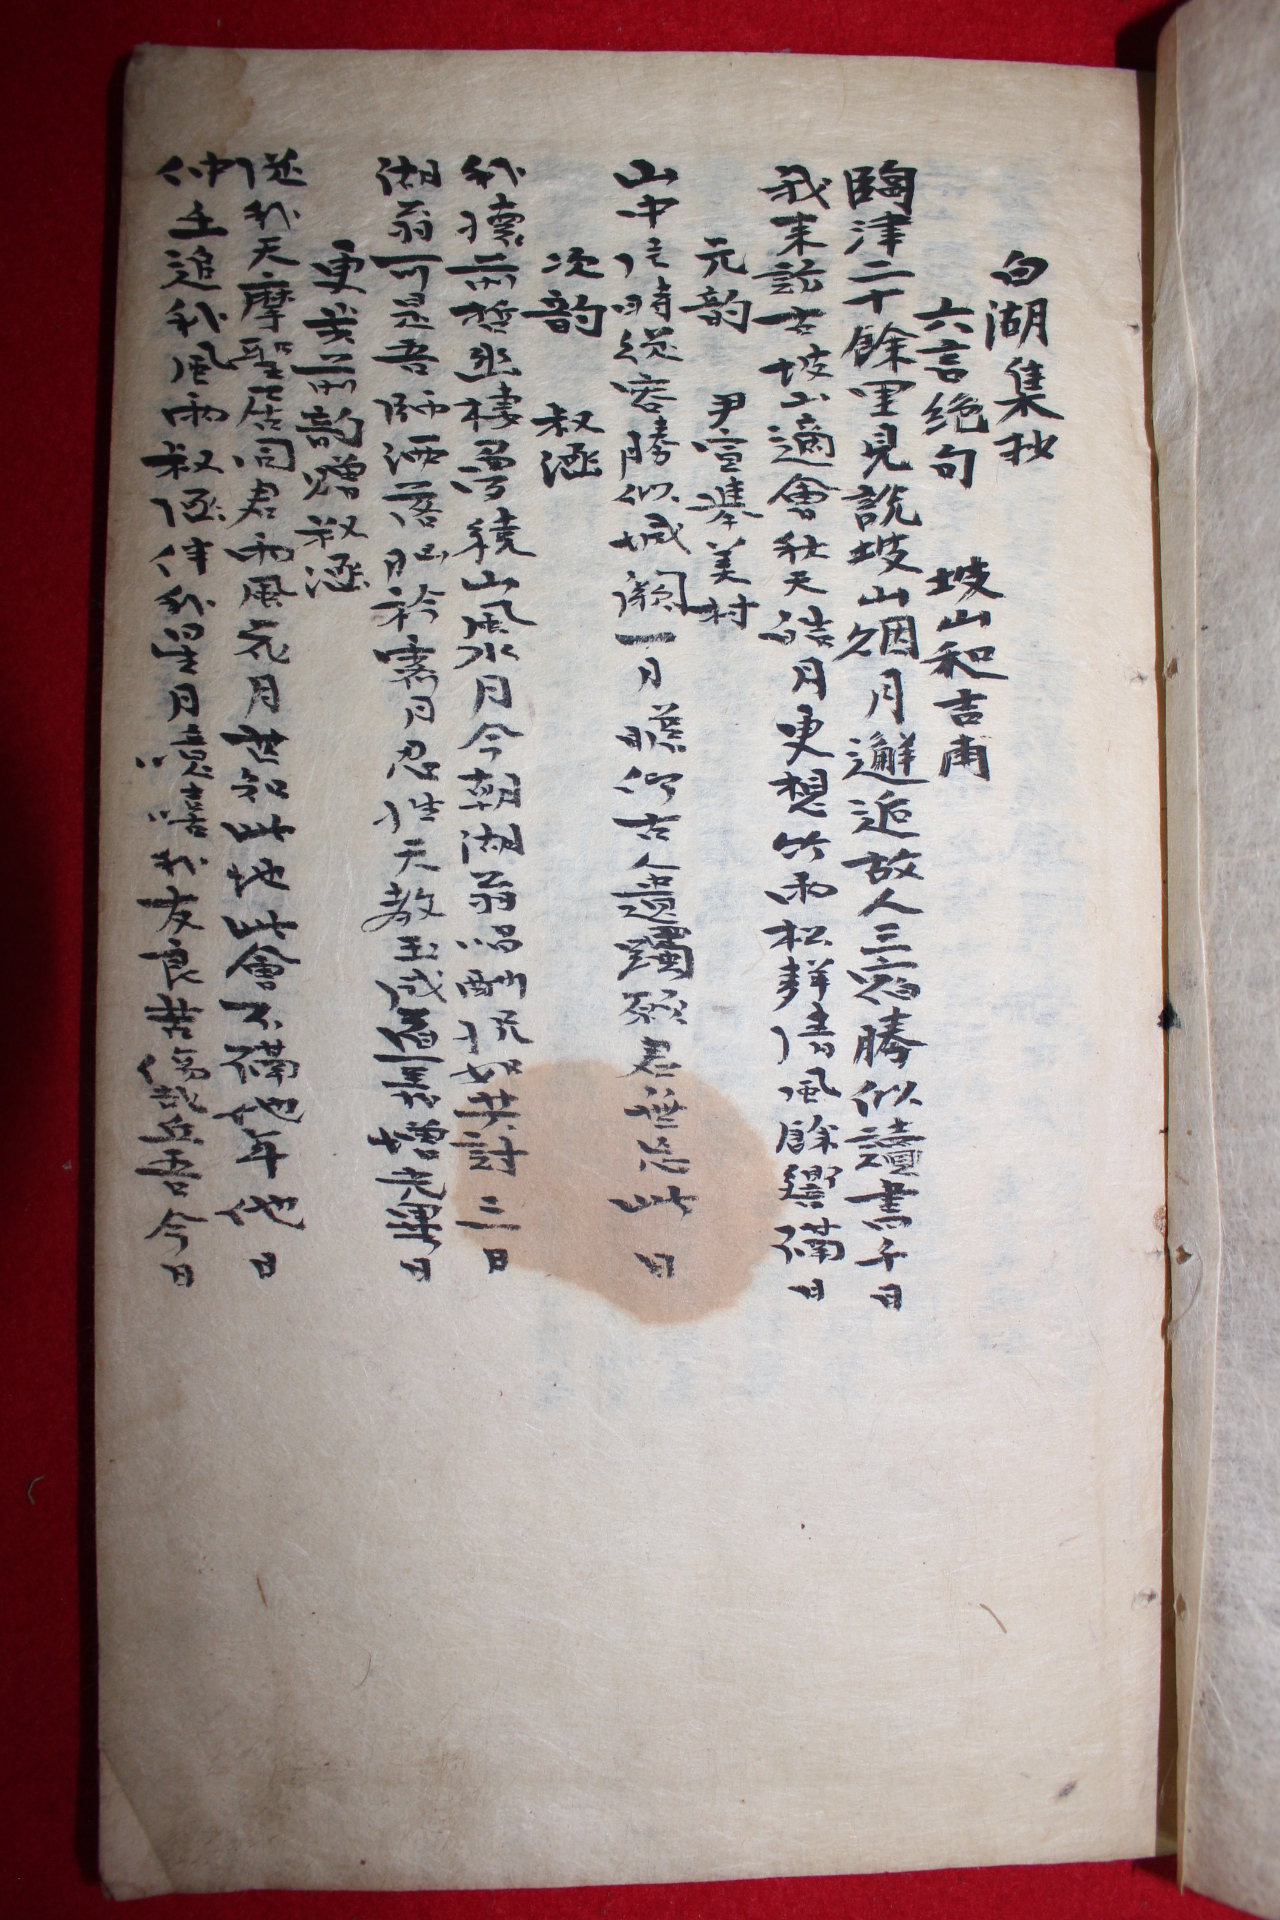 白湖集抄
六言絶句　坡山和吉甫
臨津二十餘里見說坡山烟月邂逅故人三宿勝似讀書千日
我来訪古坡山適會秋天皓月更想竹雨松聲清風餘響滿日
元韵　尹宣擧美村
山中信時從容勝似城闕一月瞻仰古人遺躅願君無忘此日
次韵　叔涵
我懷前哲幽棲夢繞山風水月今朝湖翁唱酬怳如共討三日
湖翁可是吾師洒落胸衿霽月忍性天教玉成增光異日
更步前韵贈叔涵
從我天摩聖居同君和風花月世知此地此會不滿他年他日
仲王追我風雨叔涵伴我星月噫嘻我友良苦丘吾今日